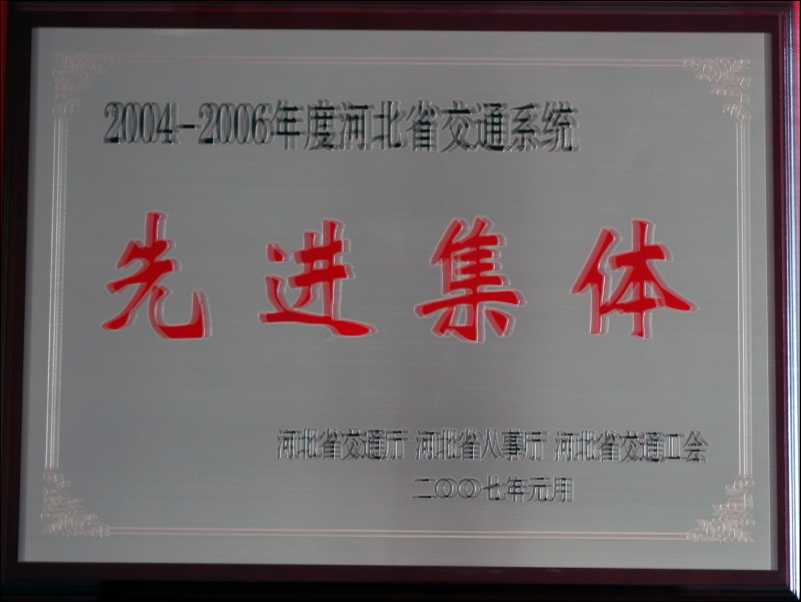 2004-2006年度河北省交通系统
先进集体
河北省交通厅 河北省人事厅 河北省交通工会
二〇〇七年元月